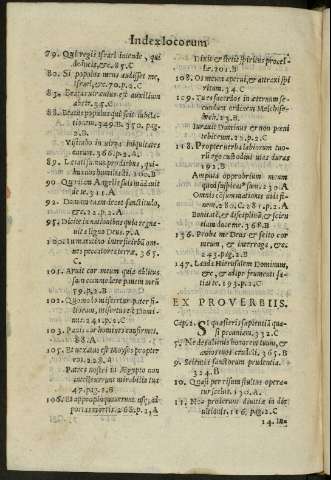 Index locorum
79. Qui regis Israel intende, qui
deducis, &c. 85. C
80. Si populus meus audisset me,
Israel, &c. 70. p. 2. C
83. Beatus vir cuius est auxilium
abs te. 35. C
88. Beatus populus qui scit iubila-
tionem. 349. B. 350. pag.
2. B
Visitabo in virga iniquitates
eorum. 366. p. 2. A
89. Lætati sumus pro diebus, qui-
bus nos humiliasti. 100. B
90. Quoniam Angelis suis mandauit
de te. 311. A
92. Domum tuam decet sanctitudo,
&c. 12. p. 2. A
95. Dicite in nationibus quia regna-
uit à ligno Deus. p. A
100. In matutino interficiebam om-
nes peccatores terræ. 365.
C.
101. Aruit cor meum quia oblitus
sum comedere panem meum
59. p. 2. B
102. Quomodo miseretur pater fi-
liorum, misertus est Domi-
nus. 241. p. 2. C
103. Panis cor hominis confirmet.
88. A
105. Et vexatus est Moyses propter
eos. 228. A
Patres nostri in Ægypto non
intellexerunt mirabilia tua
47. p. 2. B
106. Et appropinquauerunt vsq; ad
portas mortis. 268. p. 2, A
Dixit & stetit spiritus procel-
læ. 201. B
108. Os meum aperui, & attraxi spi-
ritum. 34. C
109. Tu es sacerdos in æternum se-
cundum ordinem Melchise-
dech.
Iurauit Dominus & non pœni
tebit eum. 25. p. 2. C
118. Propter verba labiorum tuo-
rum ego custodiui vias duras
192. B
Amputa opprobrium meum
quod suspicatus sum. 230. A
Omnis consummationis vidi fi-
nem. 280. C. 281. p. 2. A
Bonitatē, & disciplinā, & scien
tiam doce me. 368. B
136. Proba me Deus & scito cor
meum, & interroga, &c.
243. pag. 2. B
147. Lauda Hierusalem Dominum,
&c, & adipe frumenti sa-
tiat te. 193. p. 2. C
EX PROVERBIIS.
Cap. 2. Si quæsieris sapientiā qua-
si pecuniam. 332. C
5. Ne des alienis honorem tuum, &
annos tuos crudeli. 365. B
9. Scientia sanctorum prudentia.
324. B
10. Quasi per risum stultus opera-
tur scelus. 130. A.
11. Non proderunt diuitiæ in die
vltionis. 116. pag. 2. C
14. Mu-